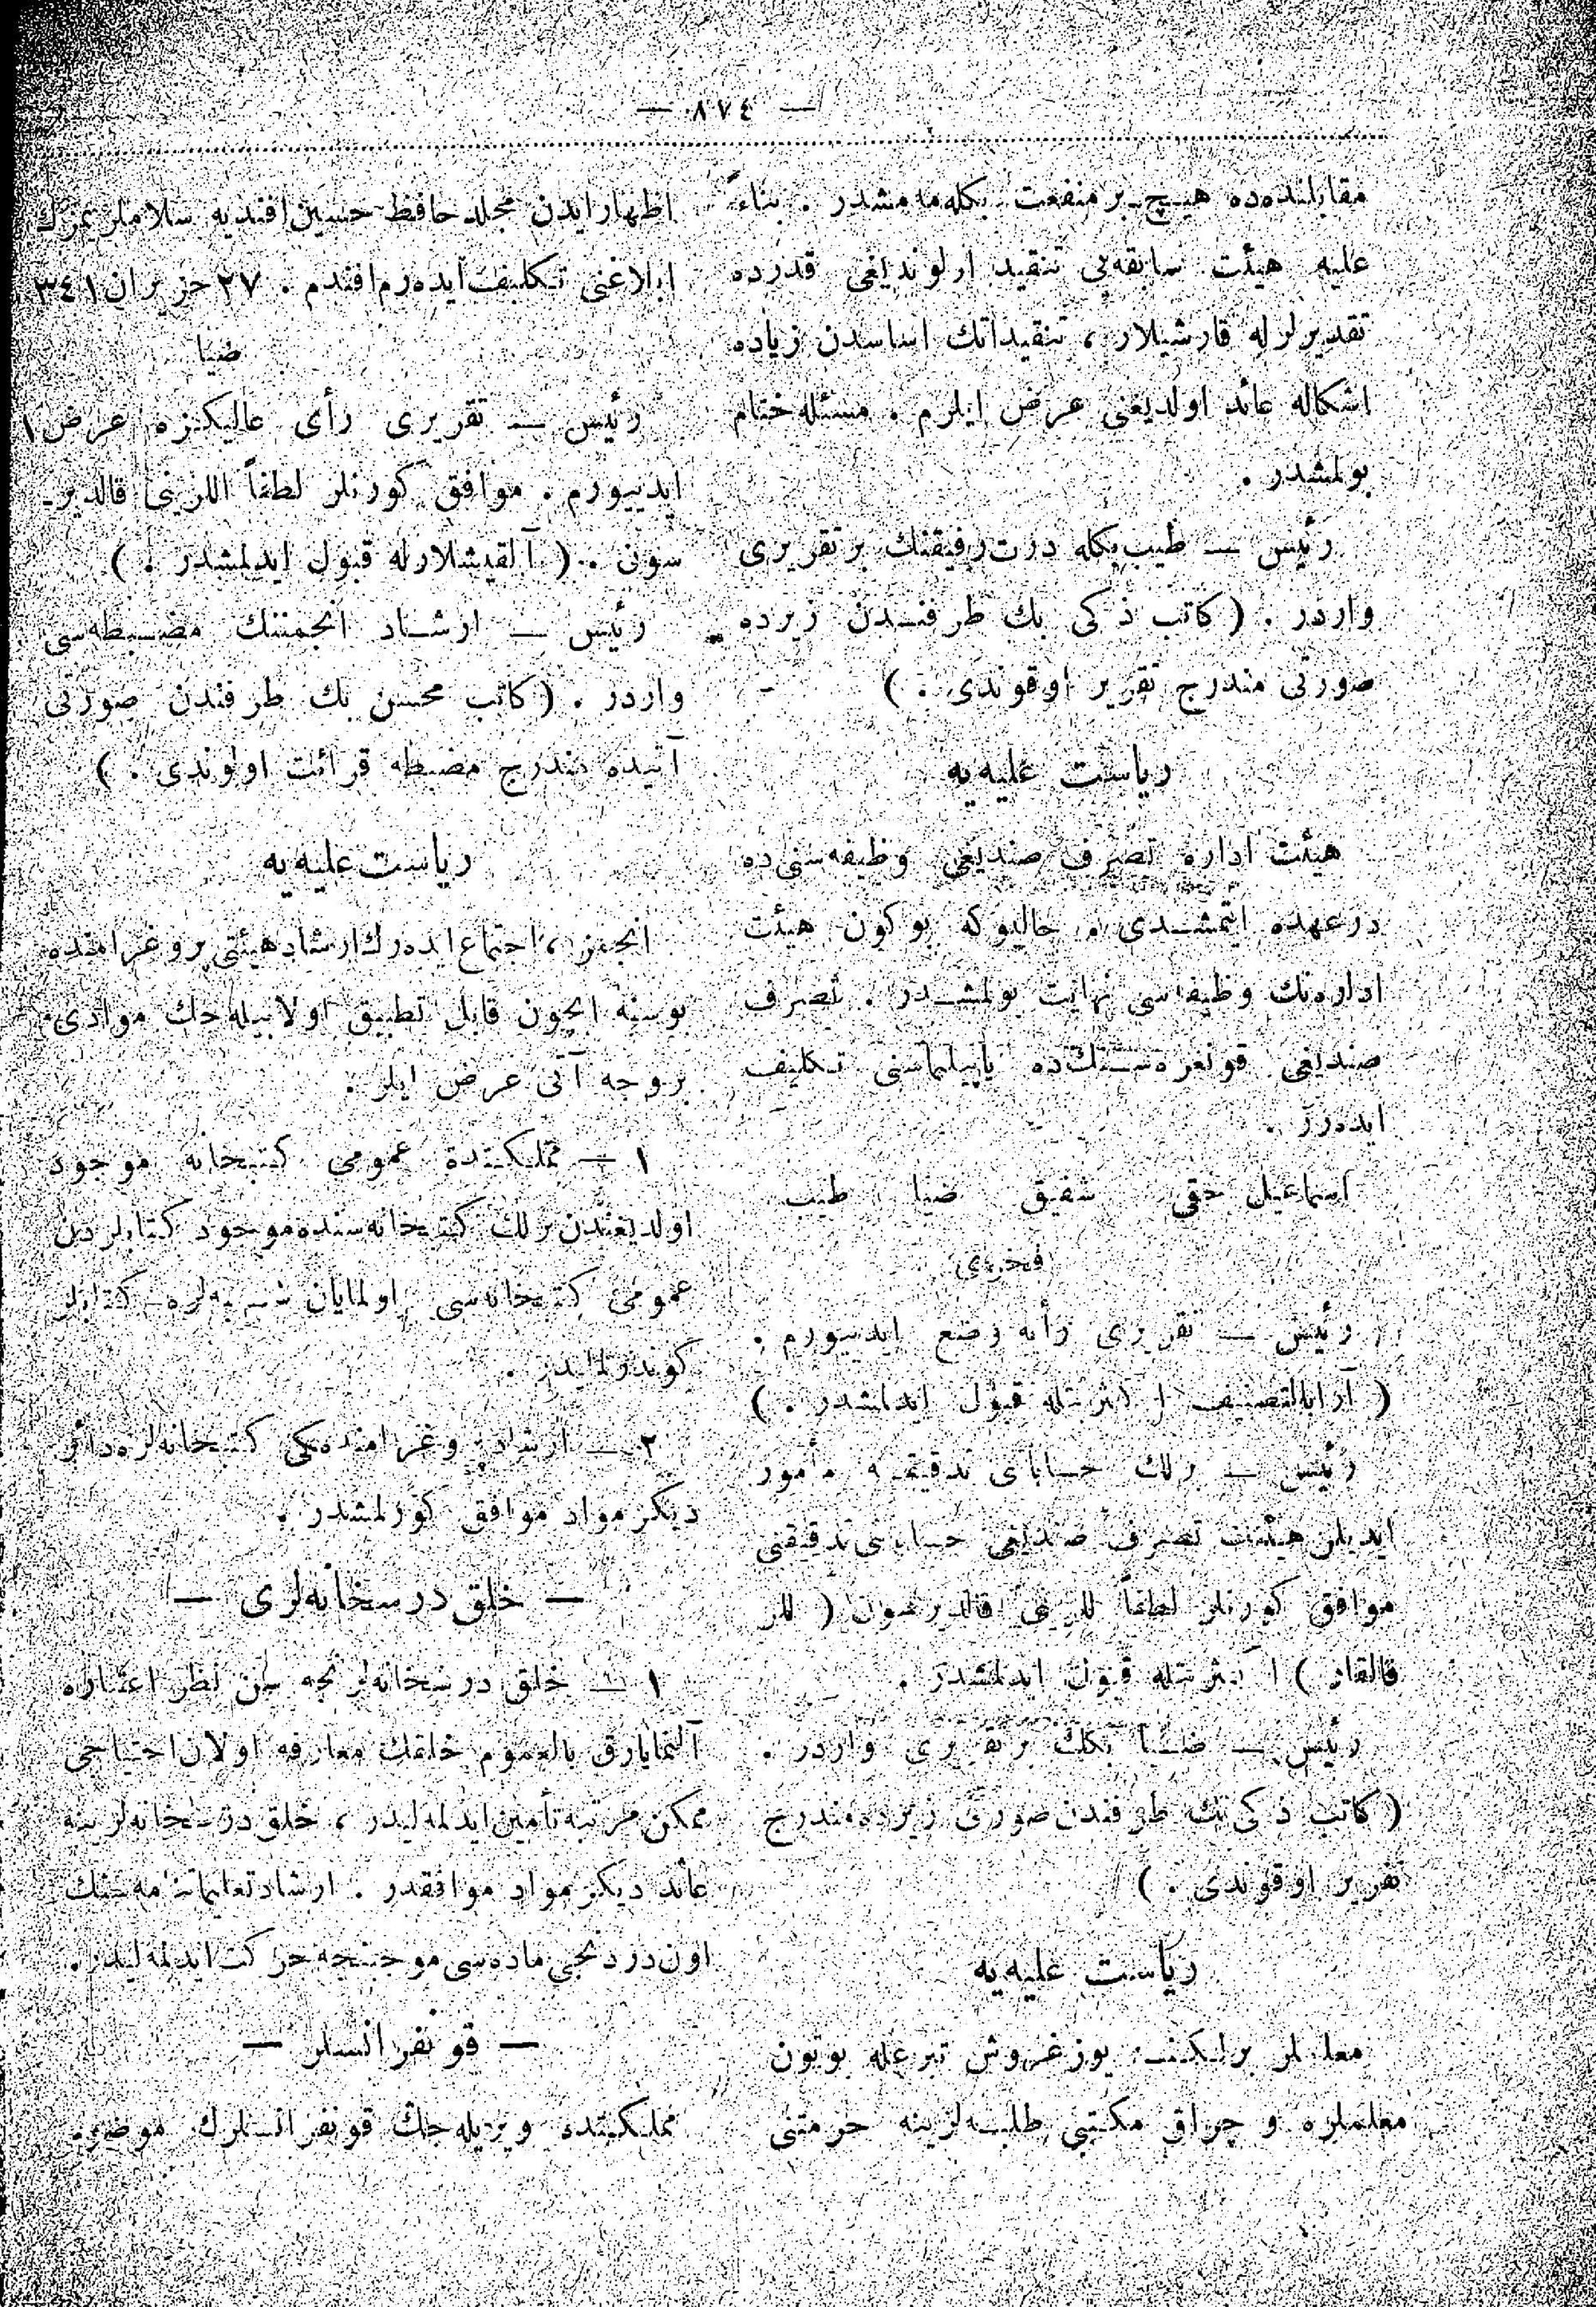 — ٨٧٤ —
مقابلنده‌ده هیـچ برمنفعت بکله‌مه‌مشدر . بناءً
علیه هیئت سابقه‌یی تنقید ارلوندیغی قدرده
تقدیرلرله قارشیلار ، تنقیداتك اساسدن زیاده
اشكاله عائد اولدیغنی عرض ایلرم . مسئله ختام
بولمشدر .
رئیس — طیب بكله درت رفیقنك برتقریری
واردر . ( كاتب ذكی بك طرفنـدن زیرده
صورتی مندرج تقریر اوقوندی . )
ریاست علیه‌یه
هیئت اداره تصرف صندیغی وظیفه‌سنی‌ده
درعهده ایتمشـدی . حالبوكه بوكون هیئت
اداره‌نك وظیفه‌سی نهایت بولمشـدر . تصرف
صندیغی قونغره‌سـنك‌ده یاپیلماسنی تـكلیف
ایده‌رز .
اسماعیل حقی شفیق ضیا طیب
فخری
رئیس — تقریری رأیه وضع ایدییورم .
( آرابالتصنیف اكثریتله قبول ایدلمشدر . )
رئیس — برلك حسـاباتی تدقیقـه مأمور
ایدیلن هیئتك تصرف صندیغی حسـابی تدقیقنی
موافق كورنلر لطفاً اللرینی قالدیرسون ( اللر
قالقار ) اكثریتله قبول ایدلمشدر .
رئیس — ضیـا بكك برتقریری واردر .
( كاتب ذكی بك طرفندن صورتی زیرده مندرج
تقریر اوقوندی . )
ریاست علیه‌یه
معلملر برلكنـه یوز غروش تبرعله بوتون
معلملره و چراق مكتبی طلبـه‌لرینه حرمتنی
اظهار ایدن مجلد حافظ حسین افندیه سلاملریمزك
ابلاغنی تـكلیف ایده‌رم افندم . ٢٧ حزیران ٣٤١
ضیا
رئیس — تقریری رأی عالیكزه عرض
ایدییورم . موافق كورنلر لطفاً اللرینی قالدیرـ
سون . ( آلقیشلارله قبول ایدلمشدر . )
رئیس — ارشـاد انجمننك مضـبطه‌سی
واردر . ( كاتب محسن بك طرفندن صورتی
آتیده مندرج مضبطه قرائت اولوندی . )
ریاست علیه‌یه
انجمنز ، اجتماع ایده‌رك ارشاد هیئتی پروغرامنده
بوسنه ایچون قابل تطبیق اولابیله‌جك موادی
بروجه آتی عرض ایلر .
١ — مملـكتده عمومی كتبخانه موجود
اولدیغندن برلك كتبخانه‌سنده موجود كتابلردن
عمومی كتبخانه‌سی اولمایان شـعبه‌لره كتابلر
كوندرلملیدر .
٢ — ارشاد پروغرامنده‌كی كتبخانه‌لره دائر
دیكر مواد موافق كورلمشدر .
— خلق درسخانه‌لری —
١ — خلق درسخانه‌لرنجه سن نظر اعتباره
آلنمایارق بالعموم خلقك معارفه اولان احتیاجی
ممكن مرتبه تأمین ایدلمه‌لیدر ، خلق درسـخانه‌لرینه
عائد دیكر مواد موافقدر . ارشاد تعلیماتنامه‌سنك
اون دردنجی ماده‌سی موجبنجه حركت ایدلمه‌لیدر .
— قونفرانسلر —
مملـكتده ویریله‌جك قونفرانسـلرك موضوـ